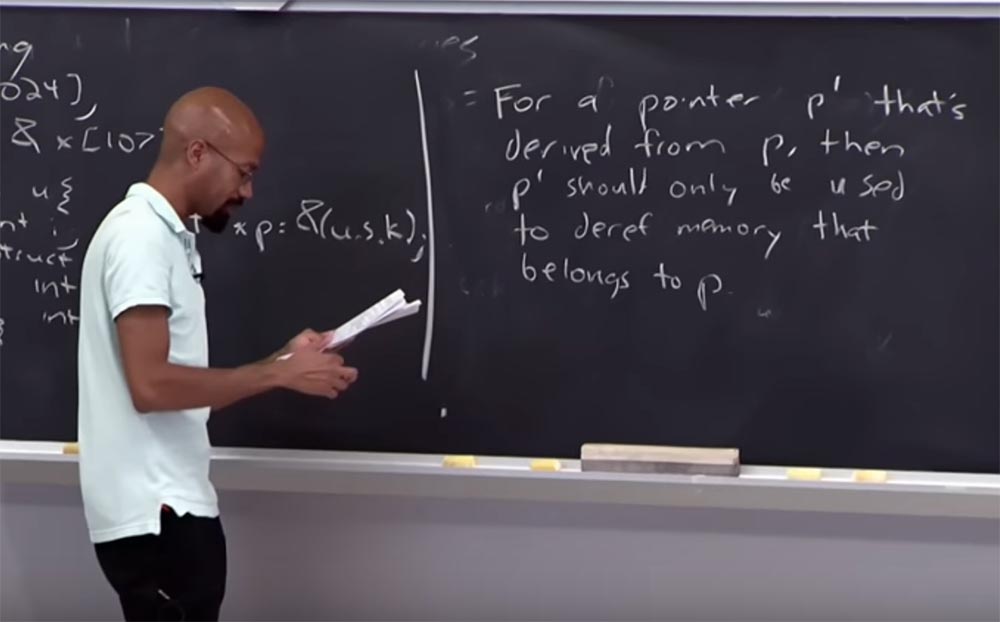 024],
& x[107]
u {
nt i;
truct
int
int
}
*p = &(u.s.k);
= For a pointer p' that's
derived from p, then
p' should only be used
to deref memory that
belongs to p.